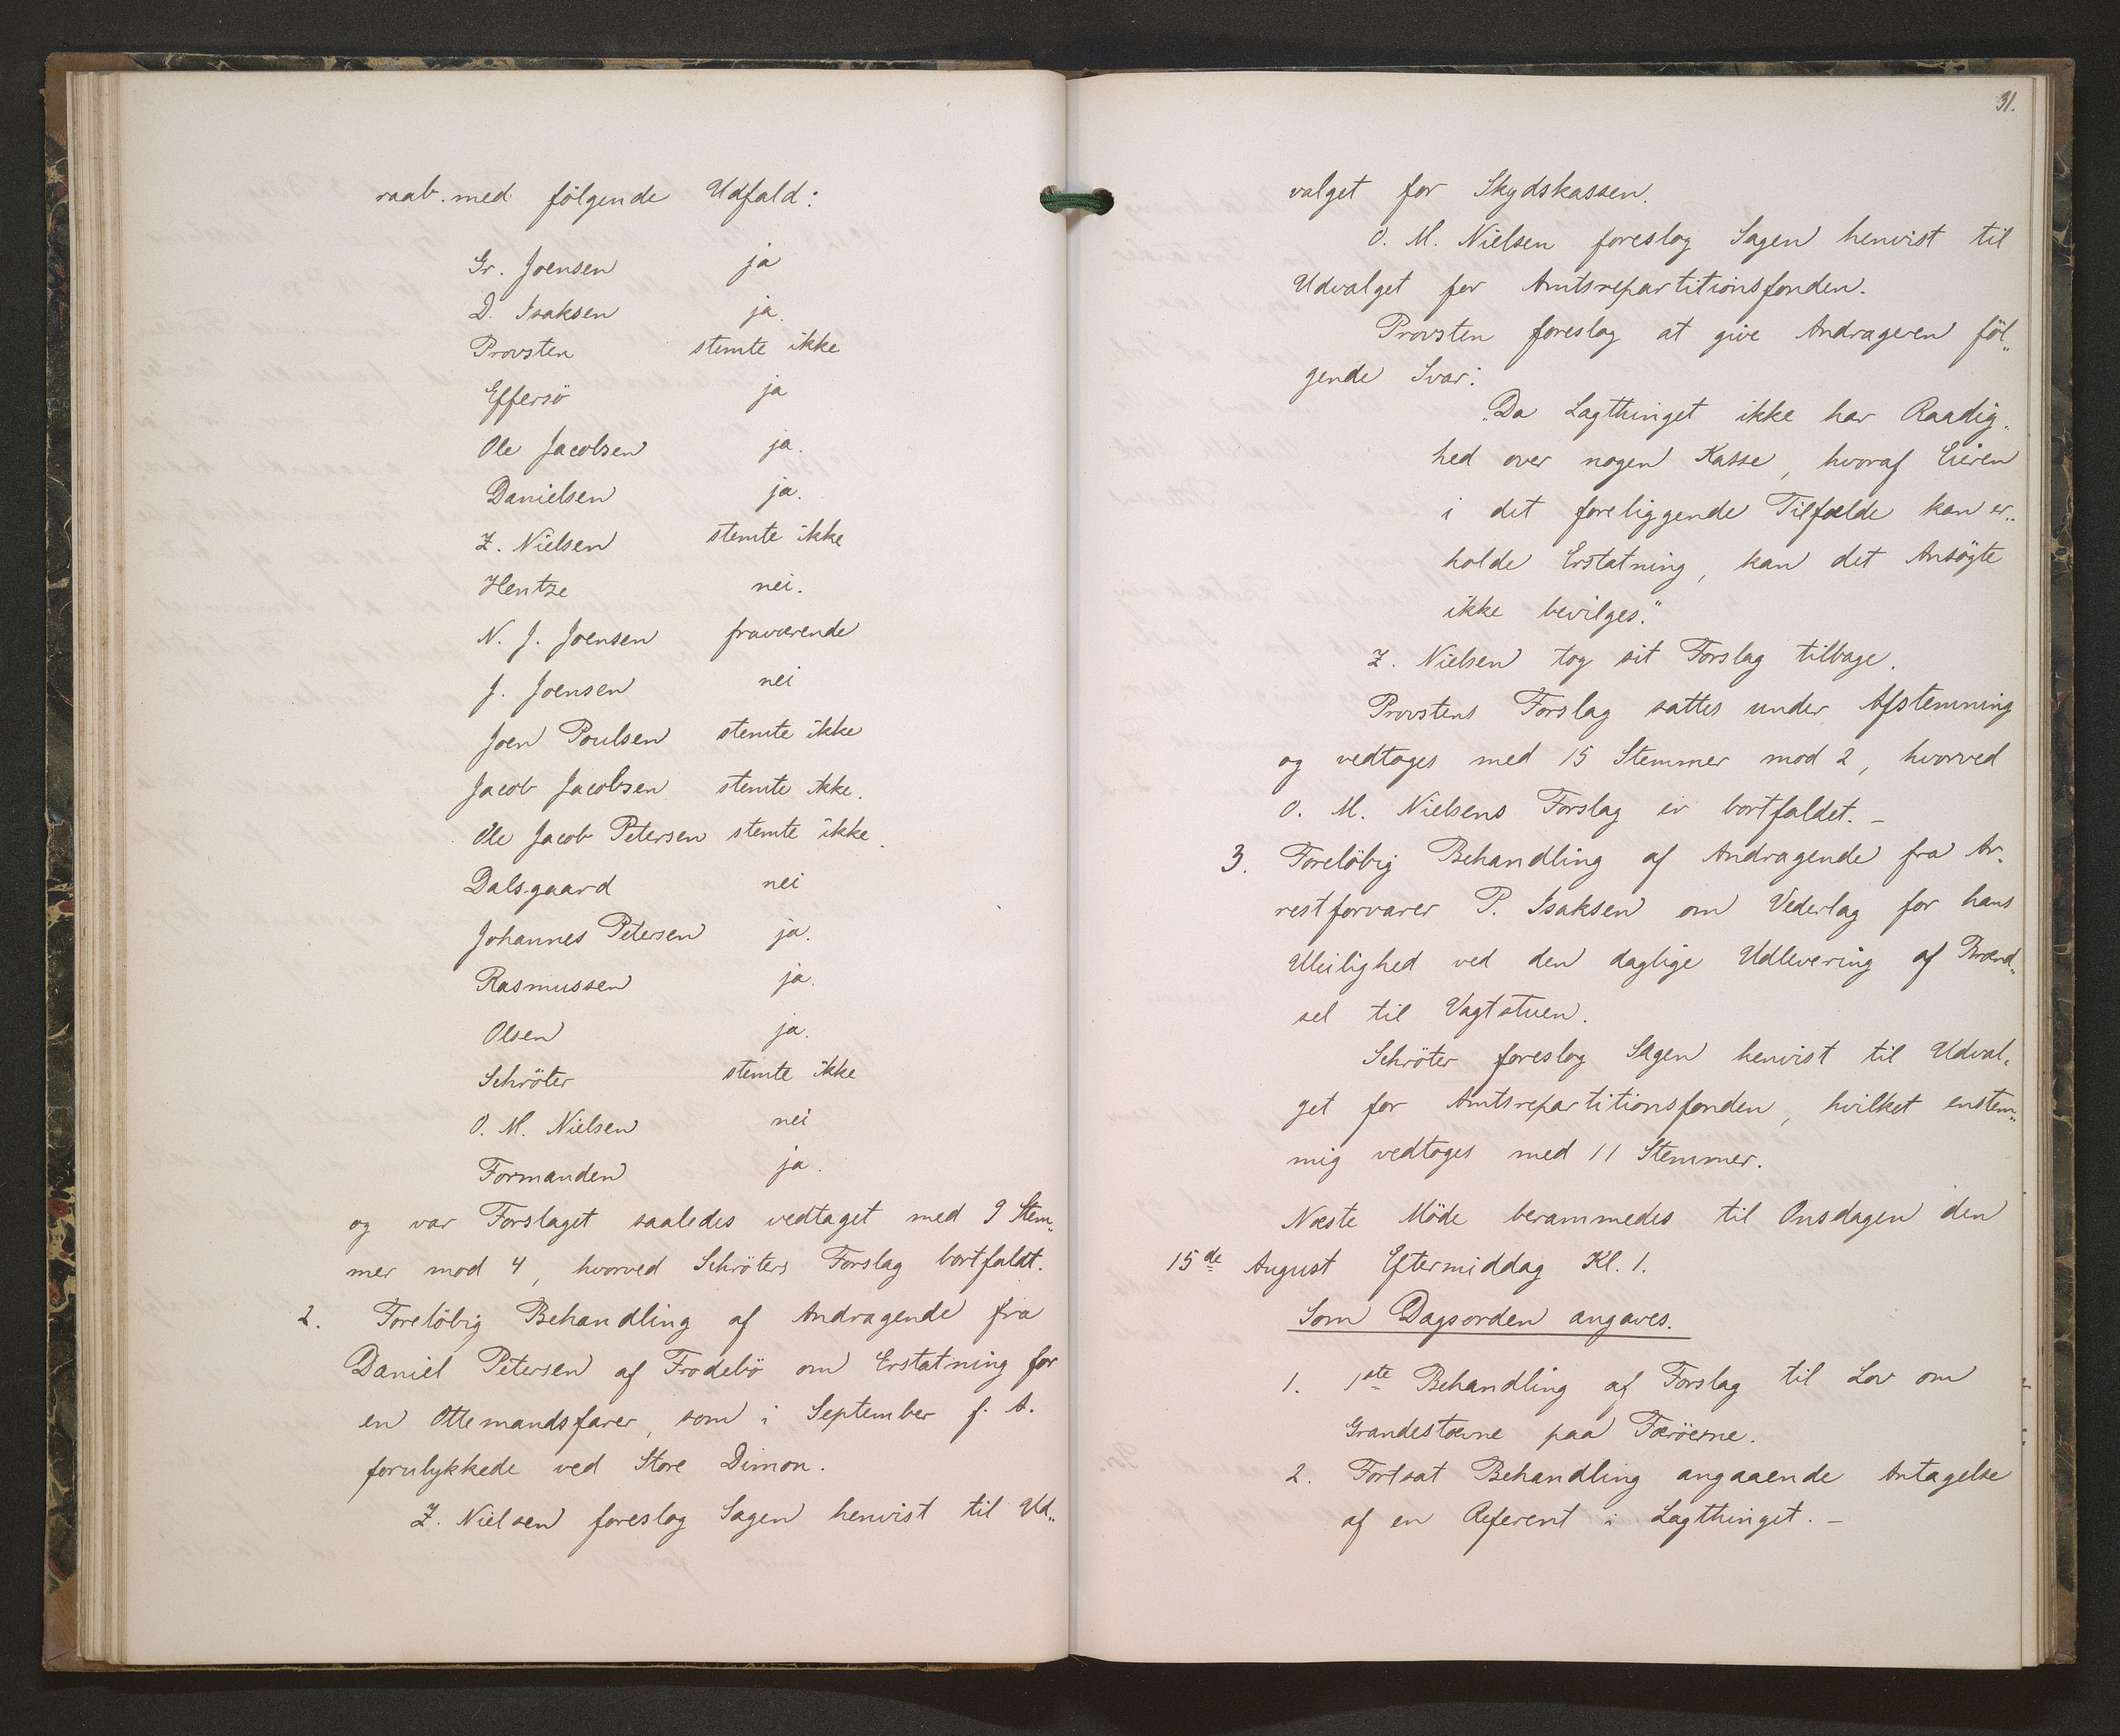 raab med følgende Udfald:
Gr. Joensen ja
D. Isaksen ja.
Provsten stemte ikke
Effersö ja
Ole Jacobsen ja.
Danielsen ja.
Z. Nielsen stemte ikke
Hentze nei.
N. J. Joensen fraværende
J. Joensen nei
Joen Poulsen stemte ikke
Jacob Jacobsen stemte ikke.
Ole Jacob Petersen stemte ikke.
Dalsgaard nei
Johannes Petersen ja.
Rasmussen ja.
Olsen ja.
Schröter stemte ikke
O. M. Nielsen nei
Formanden ja.
og var Forslaget saaledes vedtaget med 9 Stem„
mer mod 4, hvorved Schröters Forslag bortfaldt.
2. Foreløbig Behandling af Andragende fra
Daniel Petersen af Frodebö om Erstatning for
en Ottemandsfarer, som i September f. A.
forulykkede ved Store Dimon.
Z. Nielsen foreslog Sagen henvist til Ud„
31.
valget for Skydskassen.
O. M. Nielsen foreslog Sagen henvist til
Udvalget for Amtsrepartitionsfonden.
Provsten foreslog at give Andrageren föl„
gende Svar:
„Da Lagthinget ikke har Raadig„
hed over nogen Kasse, hvoraf Eieren
i det foreliggende Tilfælde kan er„
holde Erstatning, kan det Ansögte
ikke bevilges."
Z. Nielsen tog sit Forslag tilbage.
Provstens Forslag sattes under Afstemning
og vedtoges med 15 Stemmer mod 2, hvorved
O. M. Nielsens Forslag er bortfaldet. –
3. Foreløbig Behandling af Andragende fra Ar„
restforvarer P. Isaksen om Vederlag for hans
Uleilighed ved den daglige Udlevering af Brænd„
sel til Vagtstuen.
Schröter foreslog Sagen henvist til Udval„
get for Amtsrepartitionsfonden, hvilket enstem„
mig vedtoges med 11 Stemmer.
Næste Möde berammedes til Onsdagen den
15de August Eftermiddag Kl. 1.
Som Dagsorden angaves.
1. 1ste Behandling af Forslag til Lov om
Grandestævne paa Færöerne.
2. Fortsat Behandling angaaende Antagelse
af en Referent i Lagthinget. –